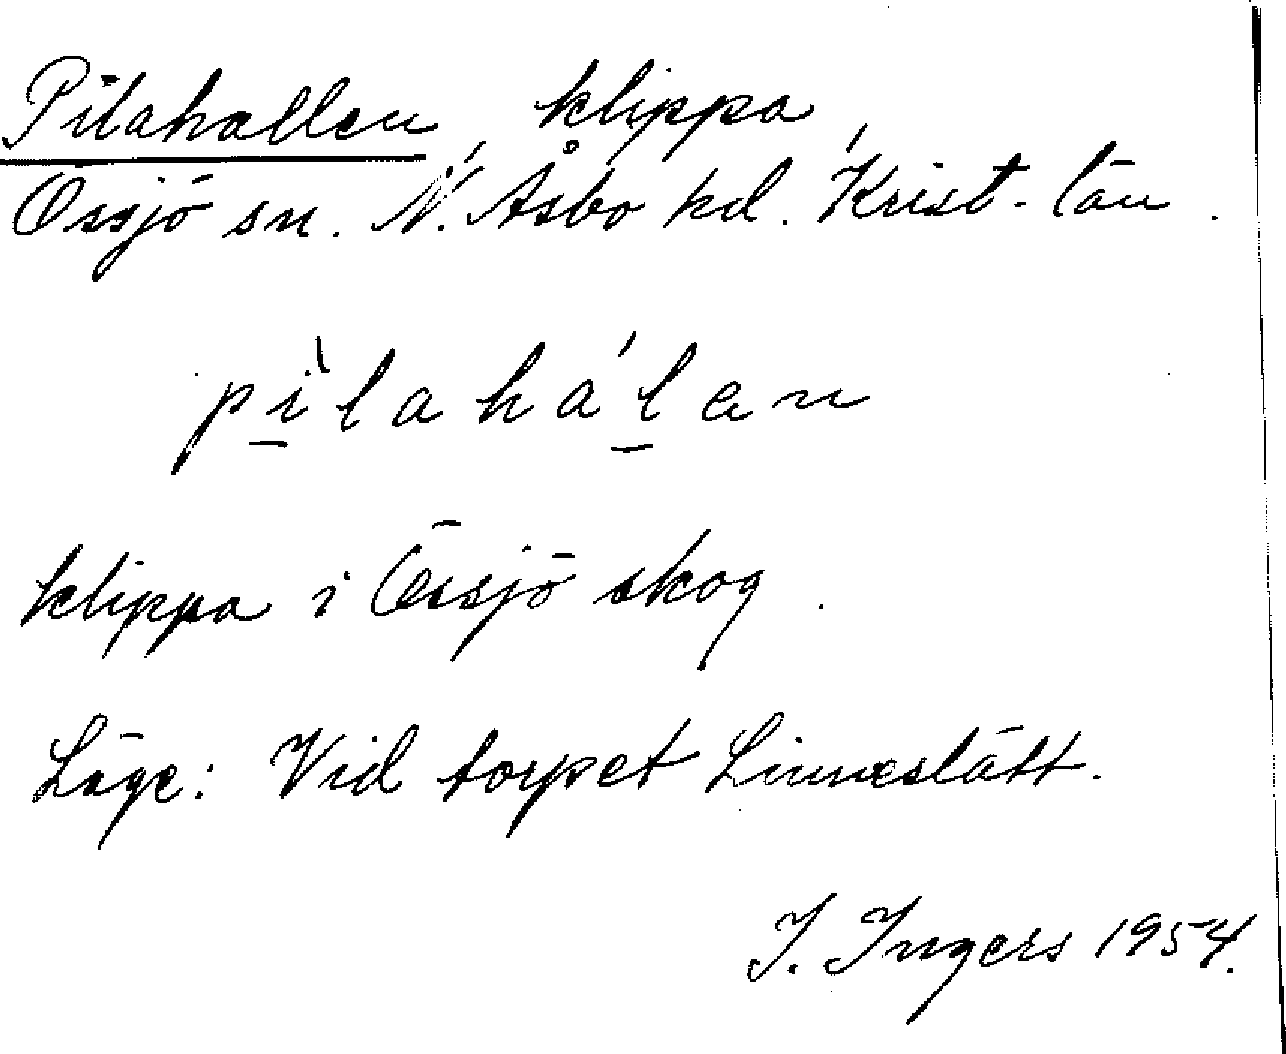 Pilahallen, klippa,
Össjö sn. N. Åsbo hd. Krist. län.
pìlahálan
klippa i Össjö skog.
Läge: Vid torpet Linneslätt.
I. Ingers 1954.